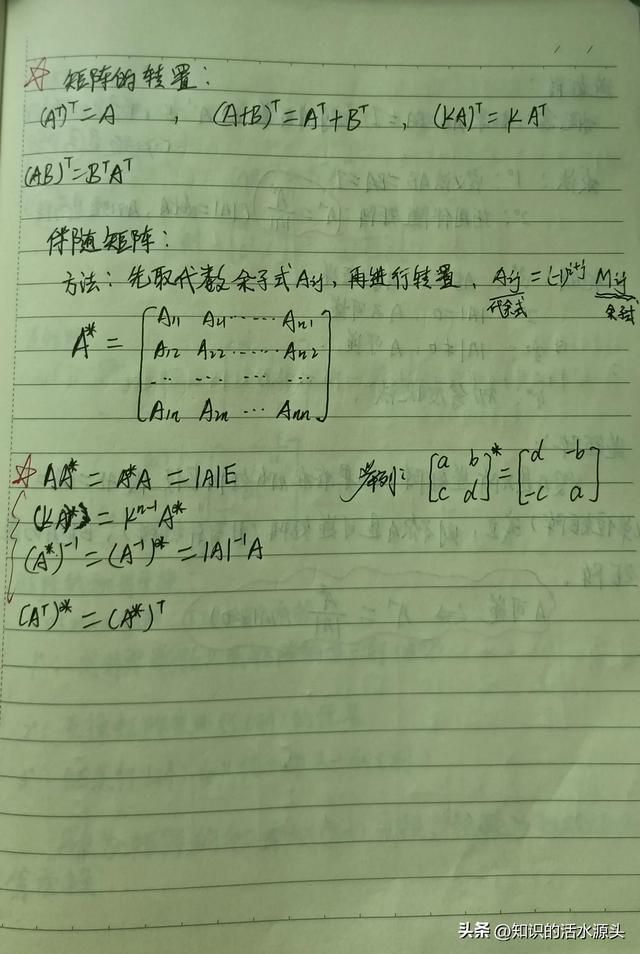 ☆ 矩阵的转置：
(Aᵀ)ᵀ=A ， (A+B)ᵀ=Aᵀ+Bᵀ ， (KA)ᵀ=KAᵀ
(AB)ᵀ=BᵀAᵀ
伴随矩阵：
方法：先取代数余子式Aij，再进行转置、Aij=(-1)^(i+j) Mij
代余式 余子式
A11 A21 …… An1
A* = A12 A22 …… An2
… … … …
A1n A2n … Ann
☆ AA*=A*A=|A|E 举例： [a b c d]* = [d -b -c a]
(KA)*=Kⁿ⁻¹A*
(A*)⁻¹=(A⁻¹)*=|A|⁻¹A
(Aᵀ)*=(A*)ᵀ
头条 @知识的活水源头